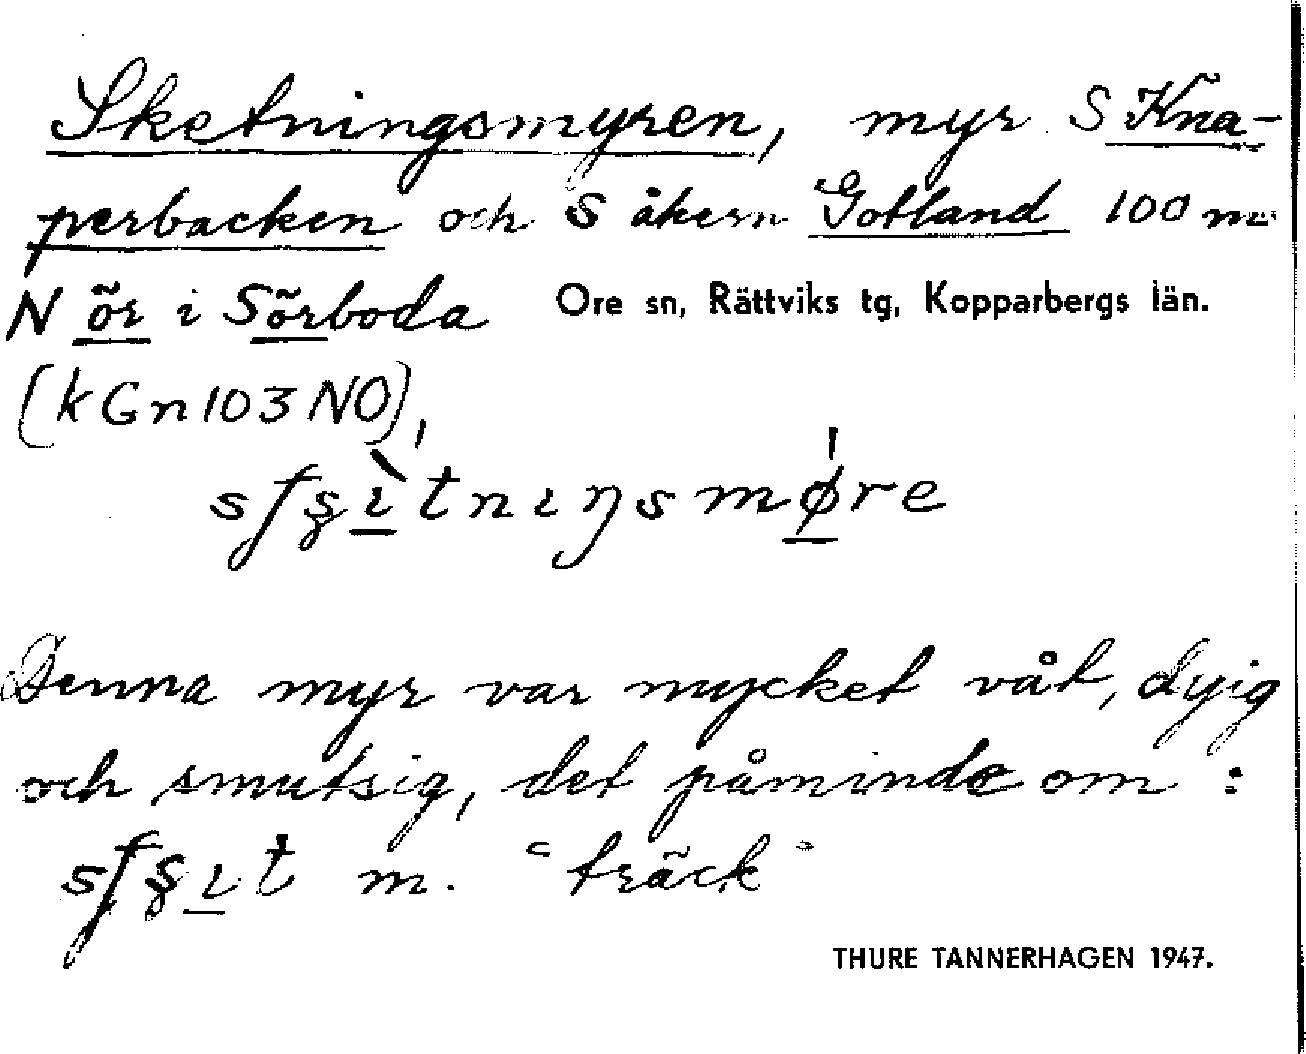 Sketningsmyren, myr S Kna-
perbacken och S åkern Gotland 100 m
N ör i Sörboda Ore sn, Rättviks tg, Kopparbergs län.
(kGn103NO),
Denna myr var mycket våt, dyig
och smutsig, det påminde om :
m. "träck"
THURE TANNERHAGEN 1947.